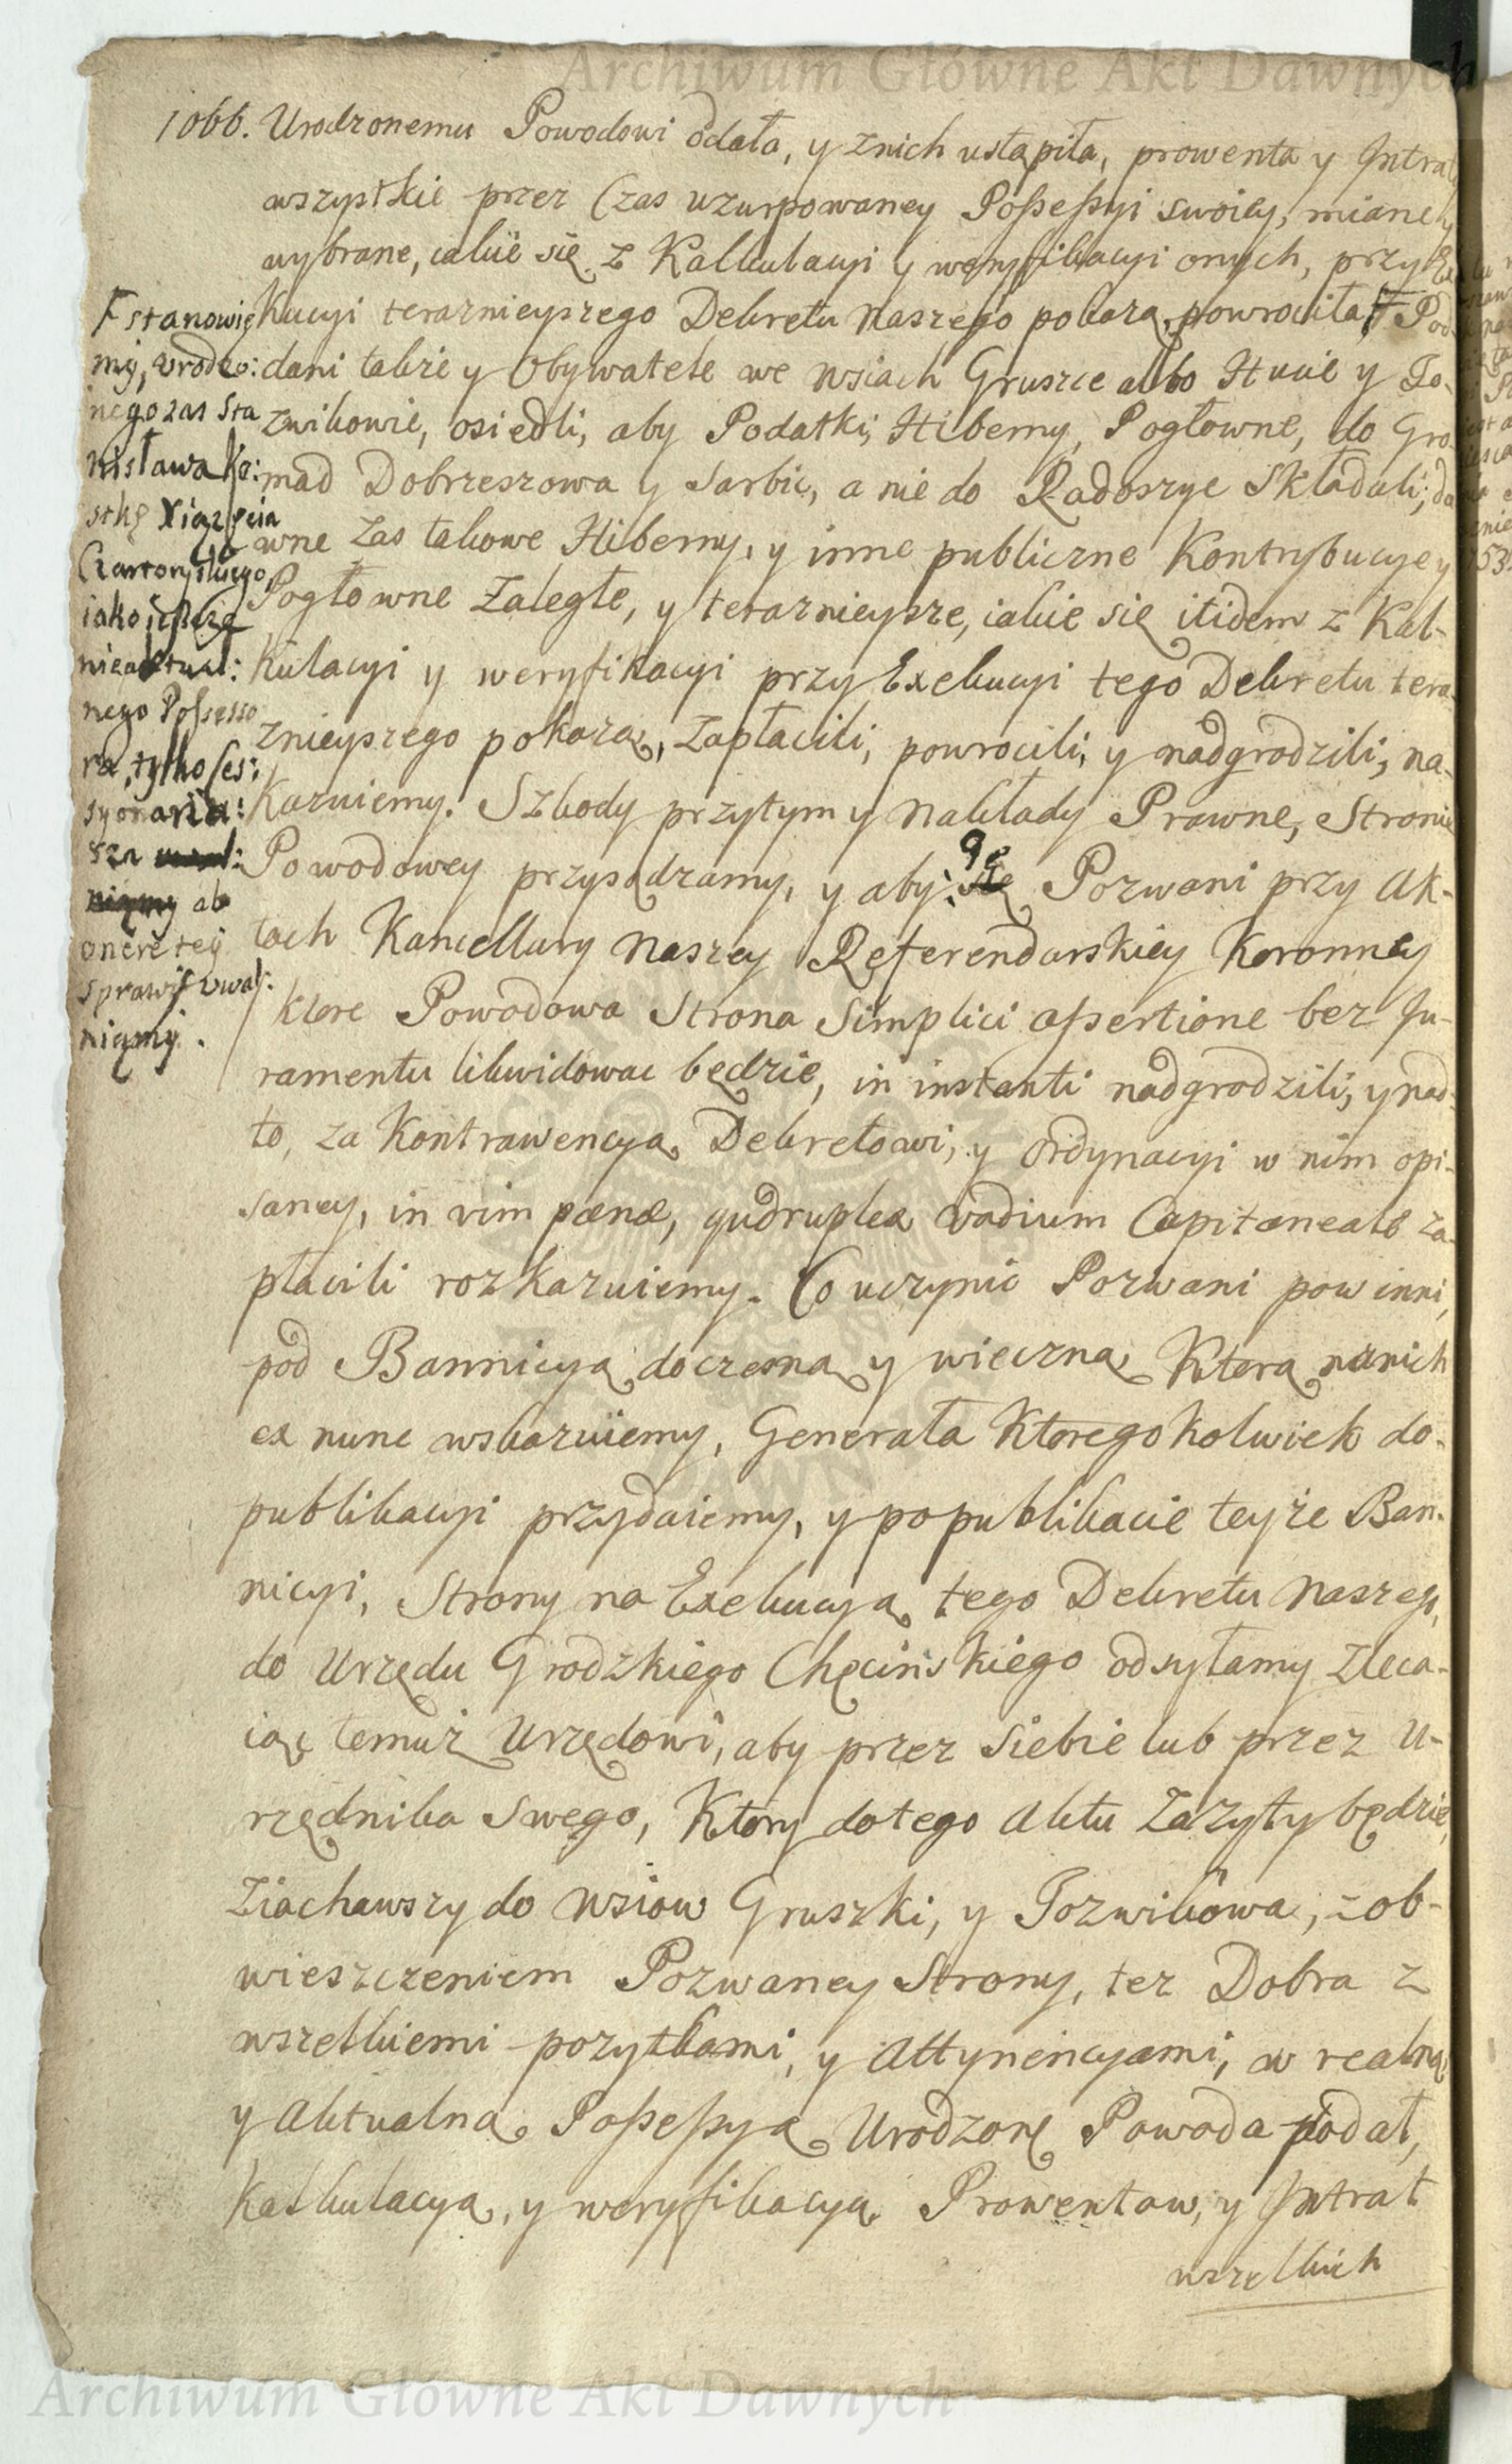 Archiwum Główne Akt Dawnych
1066. Urodzonemu Powodowi odała, y znich ustąpiła, prowenta y Intraty
wszystkie przez Czas uzurpowaney Possessyi swoiey, miane y
wybrane, iakie się z Kalkulacyi y weryfikacyi onych, przy Exe
kucyi teraznieyszego Dekretu Naszego pokażą, powrociła, F Pod
dani także y Obywatele we wsiach Gruszce albo Hucie y Jo-
zwikowie, osiedli, aby Podatki, Hiberny, Pogłowne, do Gro-
mad Dobrzeszowa y Sarbic, a nie do Radoszyc Składali; da
wne zas takowe Hiberny, y inne publiczne Kontrybucye y
Pogłowne zaległe, y teraznieysze, iakie się itidem z Kal-
kulacyi y weryfikacyi przy Exekucyi tego Dekretu tera
znieyszego pokażą, zapłacili, powrocili, y nadgrodzili, na-
kazuiemy. Szkody przytym y Nakłady Prawne, Stronie
Powodowey przysądzamy, y aby Pozwani przy Ak-
tach Kancellary Naszey Referendarskiey Koronney
ktore Powodowa Strona Simplici assertione bez Ju-
ramentu likwidowac będzie, in instanti nadgrodzili, y nad-
to, za Kontrawencyą Dekretowi, y Ordynacyi w nim opi-
saney, in vim pænæ, qudruplex vadium Capitaneale za-
płacili rozkazuiemy. Co uczynic Pozwani powinni,
pod Bannicyą doczesną y wieczną Którą nanich
ex nunc wskazuiemy, Generała Ktoregokolwiek do-
publikacyi przydaiemy, y popublikacie teyże Ban-
nicyi, Strony na Exekucyą tego Dekretu Naszego,
do Urzędu Grodzkiego Chęcińskiego odsyłamy zleca-
iąc temuż Urzędowi, aby przez siebie lub przez U-
rzędnika Swego, Ktory dotego Aktu zazyty będzie,
ziachawszy do wsiow Gruszki, y Jozwikowa, zob-
wieszczeniem Pozwaney Strony, tez Dobra z
wszelkiemi pozytkami, y Attynencyami, w realną
y Aktualną Possessyą Urodzone Powoda podał,
Kalkulacyą, y weryfikacyą Prowentow, y Intrat
wszelkich
F stanowię
my, Urodzo:
nego zas Sta
nisława Ka:
sthę Xiążęcia
Czartoryskiego,
iako iuż
nieaktual:
nego Possesso
ra, tylko ces:
syonaryu:
sza
ab
onere tey
sprawy uwal:
niamy.
Archiwum Główne Akt Dawnych